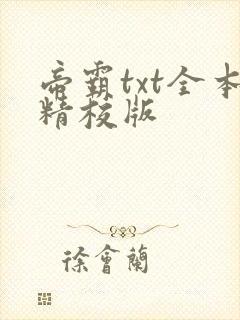 帝霸txt全本
精校版
徐會蘭